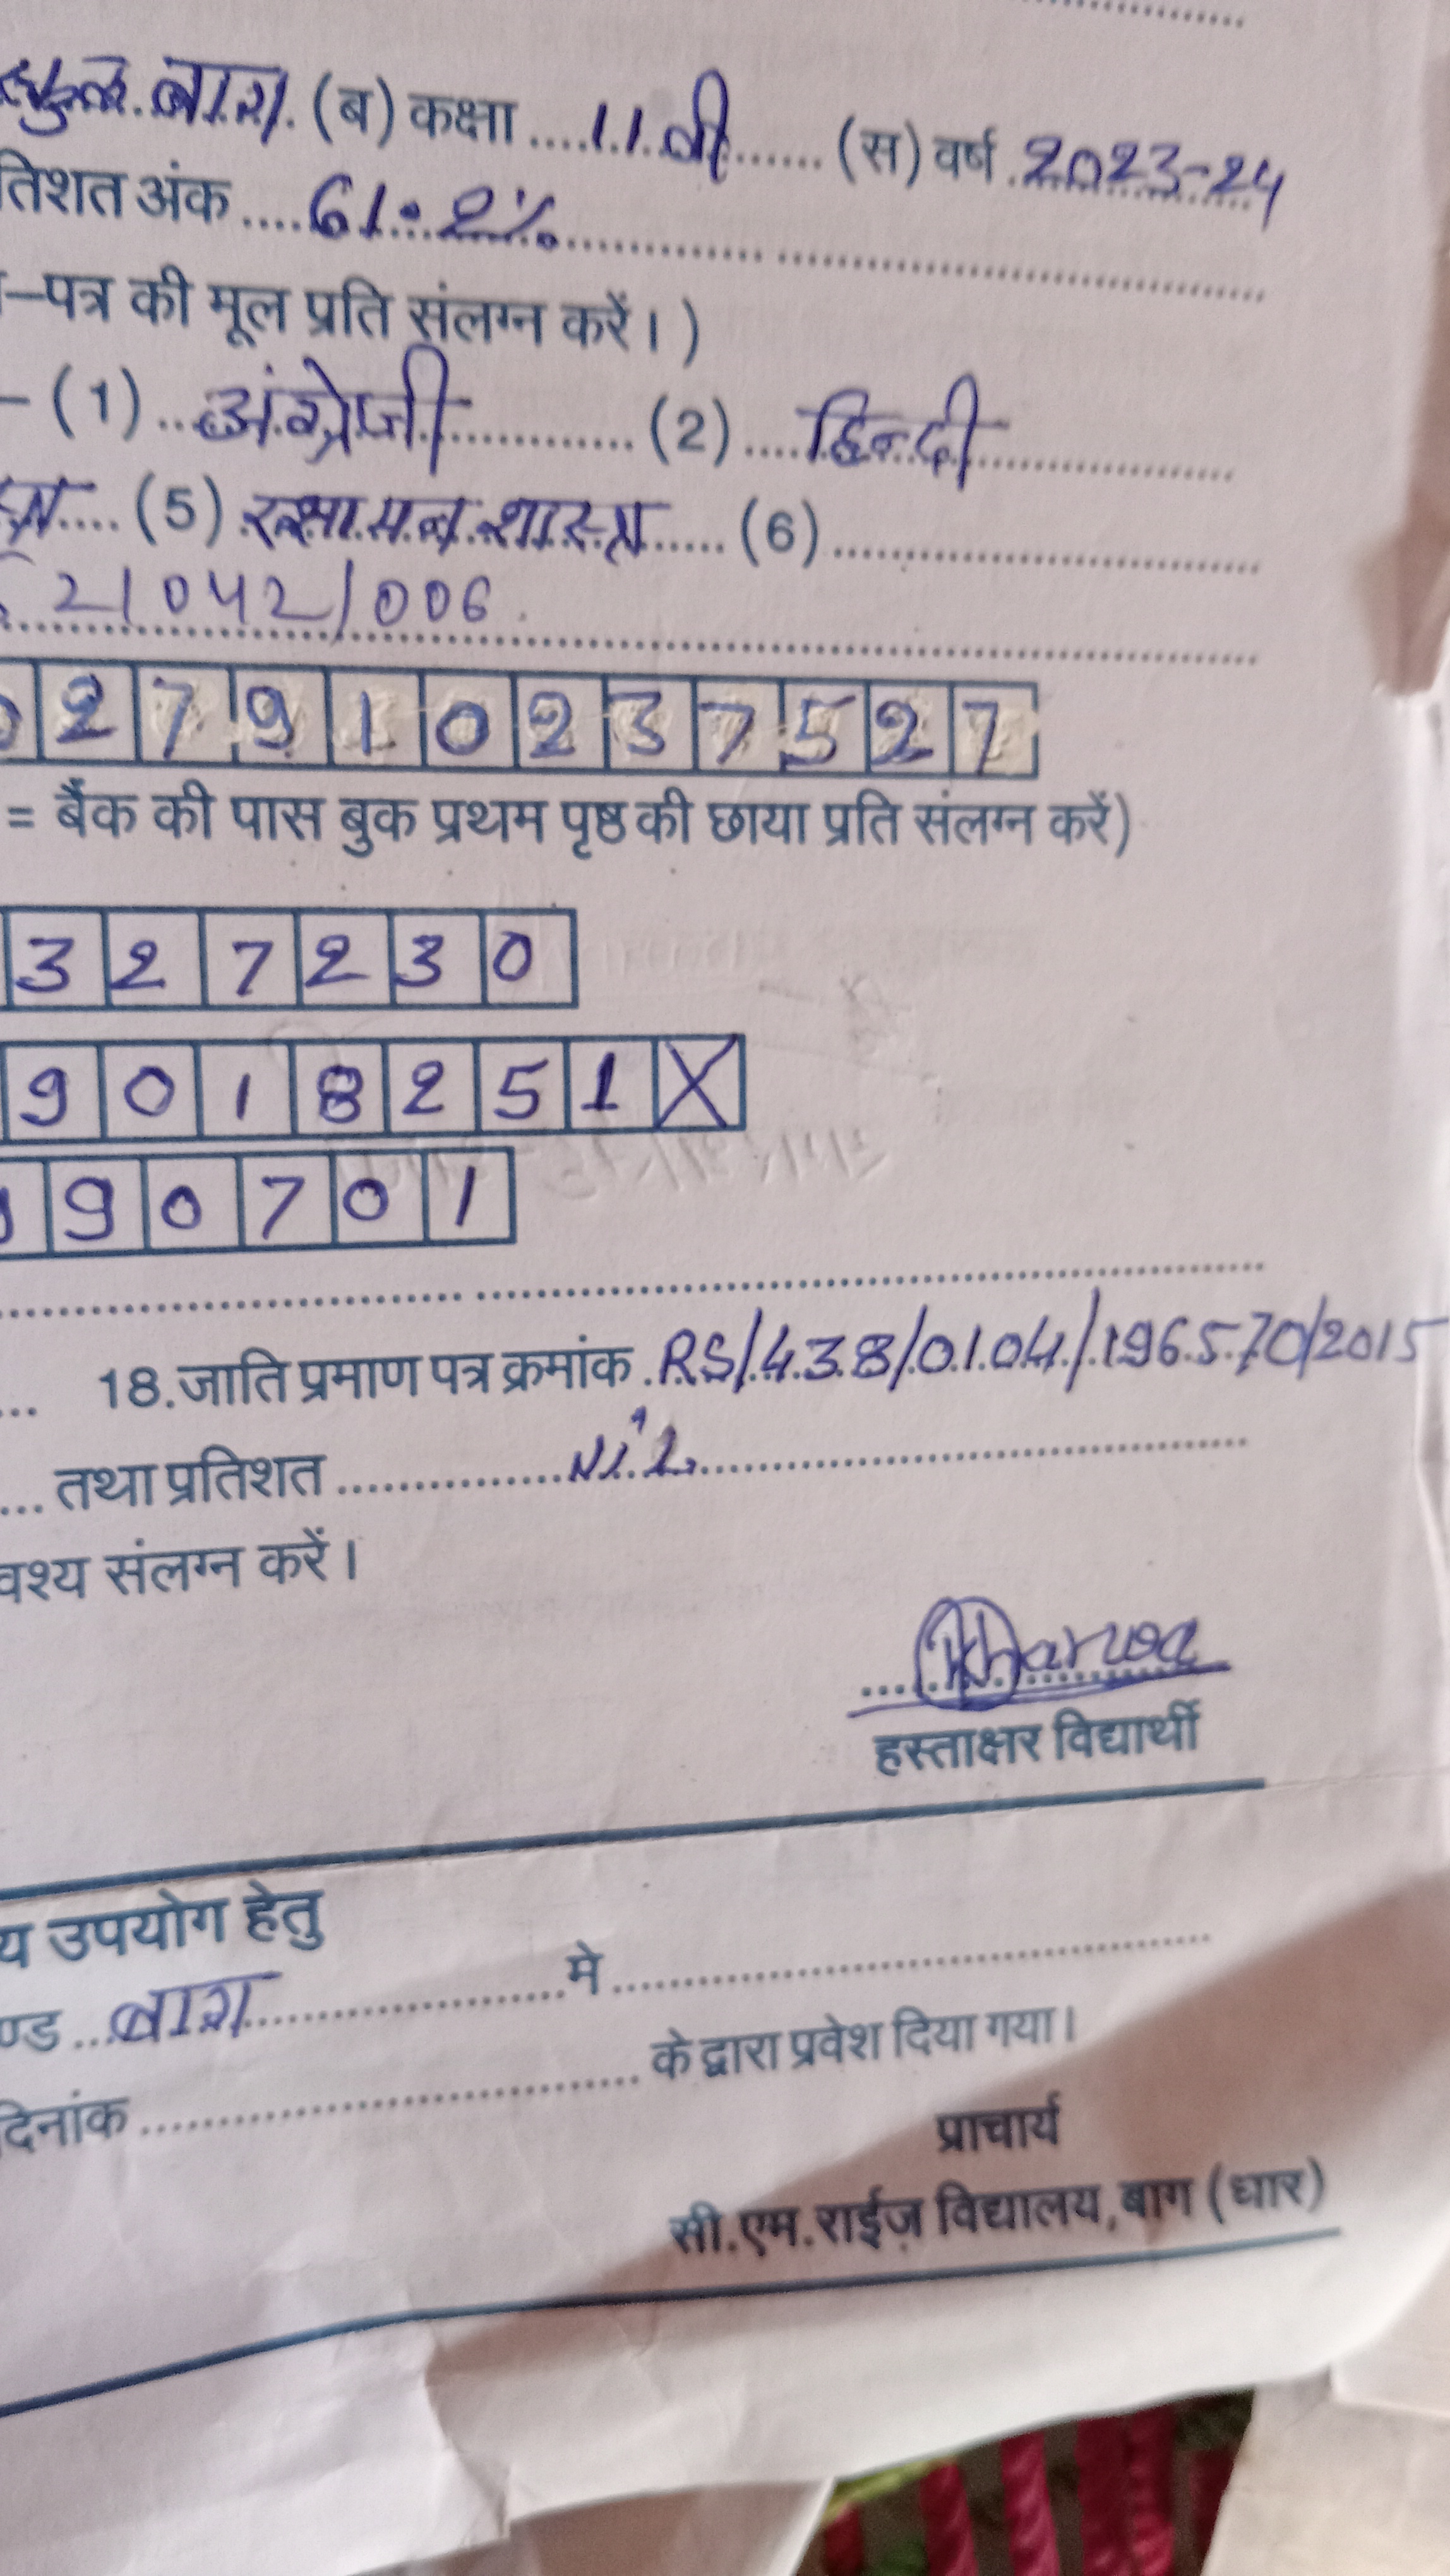 बाग (ब) कक्षा 11वी (स) वर्ष 2023-24
तिशत अंक 61.2%
–पत्र की मूल प्रति संलग्न करें। )
– (1) अंग्रेजी (2) हिन्दी
(5) रसायन शास्त्र (6)
21042/006
0 2 7 9 1 0 2 3 7 5 2 7
= बैंक की पास बुक प्रथम पृष्ठ की छाया प्रति संलग्न करें)
3 2 7 2 3 0
9 0 1 8 2 5 1 X
9 0 7 0 1
18.जाति प्रमाण पत्र क्रमांक RS/438/0104/196570/2015
तथा प्रतिशत Nil
वश्य संलग्न करें।
हस्ताक्षर विद्यार्थी
य उपयोग हेतु
ण्ड बाग मे
के द्वारा प्रवेश दिया गया।
दिनांक
प्राचार्य
सी.एम.राईज़ विद्यालय, बाग (धार)